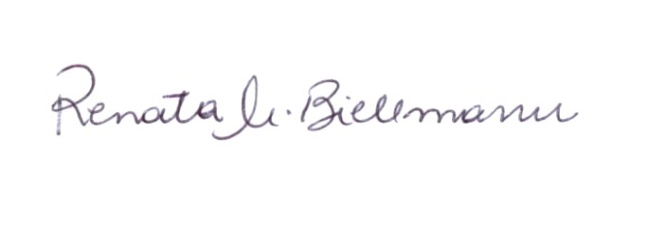 Renata M. Biellmann